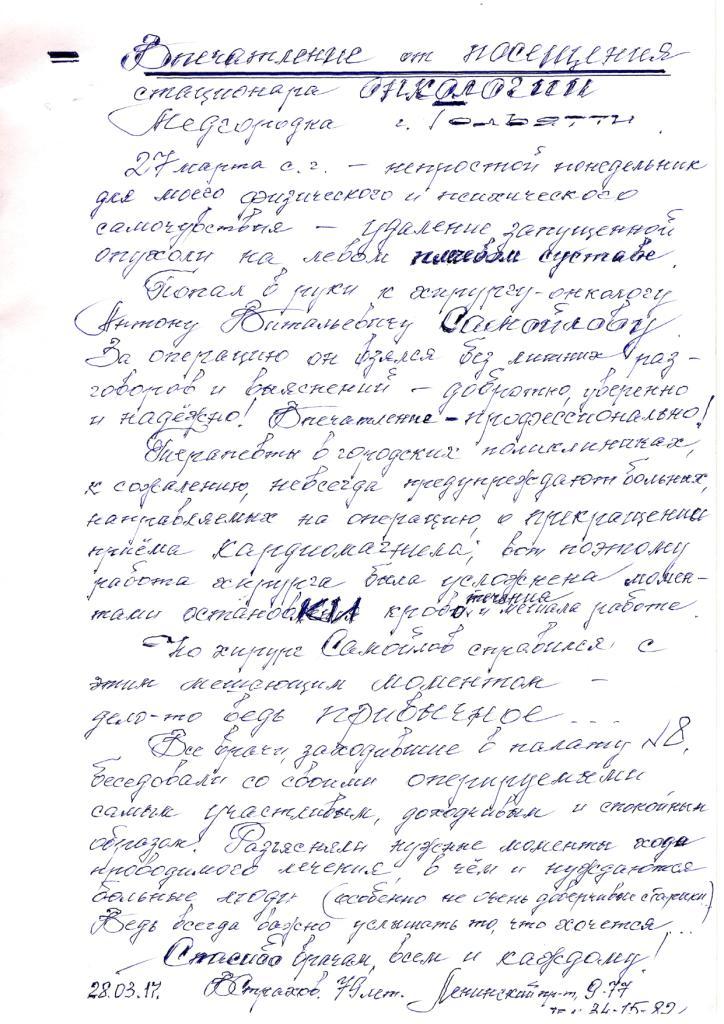 Впечатление от посещения
стационара онкологии
Медгородка г. Тольятти
27 марта с. г. – непростой понедельник
для моего физического и психического
самочувствия – удаление запущенной
опухоли на левом плечевом суставе.
Попал в руки к хирургу-онкологу
Антону Витальевичу Самойлову.
За операцию он взялся без лишних раз-
говоров и выяснений – добротно, уверенно
и надёжно! Впечатление – профессионально!
Терапевты в городских поликлиниках,
к сожалению, невсегда предупреждают больных,
направляемых на операцию, о прекращении
приёма кардиомагнела; вот поэтому
работа хирурга была усложнена момен-
тами остановки кровотечения и мешала работе.
Но хирург Самойлов справился с
этим мешающим моментом –
дело-то ведь привычное...
Все врачи, заходившие в палату №8,
беседовали со своими оперируемыми
самым участливым, доходчивым и спокойным
образом. Разъясняли нужные моменты хода
проводимого лечения, в чём и нуждаются
больные люди (особенно не очень доверчивые старики.)
Ведь всегда важно услышать то, что хочется...
Спасибо врачам, всем и каждому!
28.03.17. В Страхов. 79 лет. Ленинский пр-т, 9-77
34-15-82